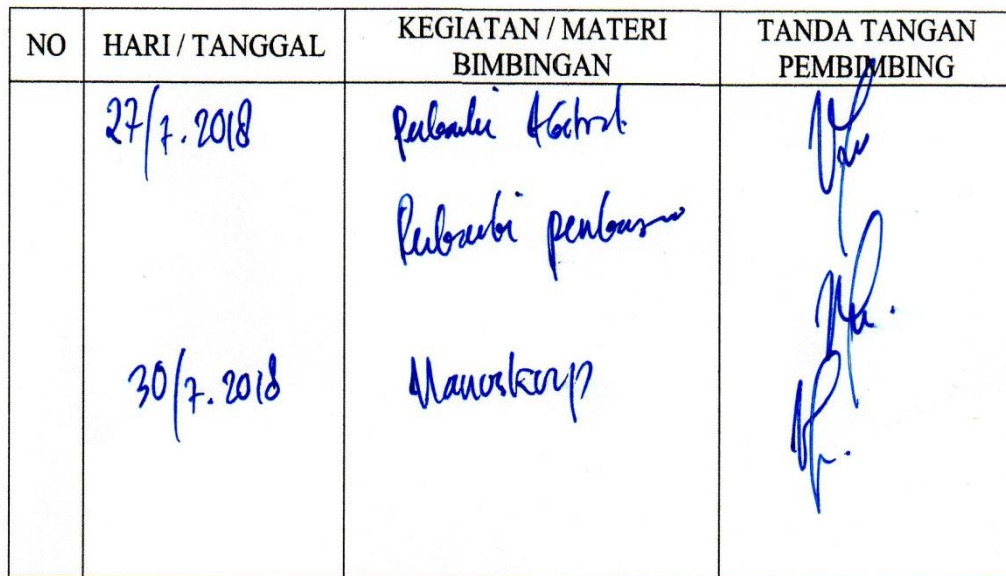 NO HARI / TANGGAL KEGIATAN / MATERI BIMBINGAN TANDA TANGAN PEMBIMBING
27/7.2018 Perbaiki Abstrak
Perbaiki
30/7.2018 Manuskrip